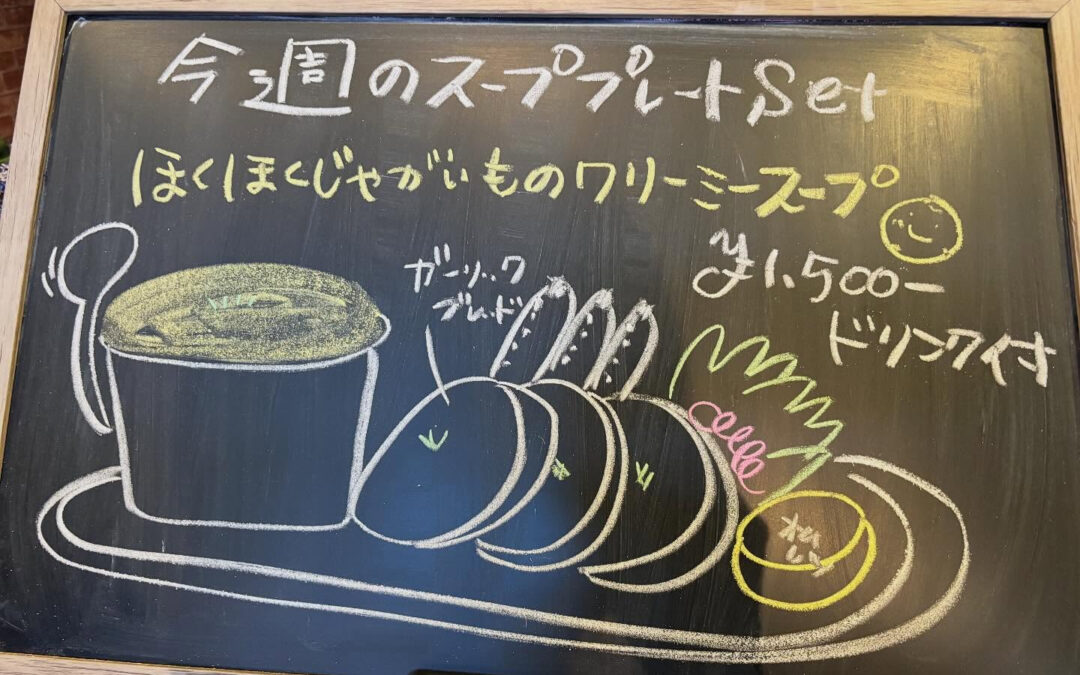 今週のスーププレートSet
ほくほくじゃがいものクリーミースープ
¥1,500ー
ドリンク付
ガーリック
ブレッド